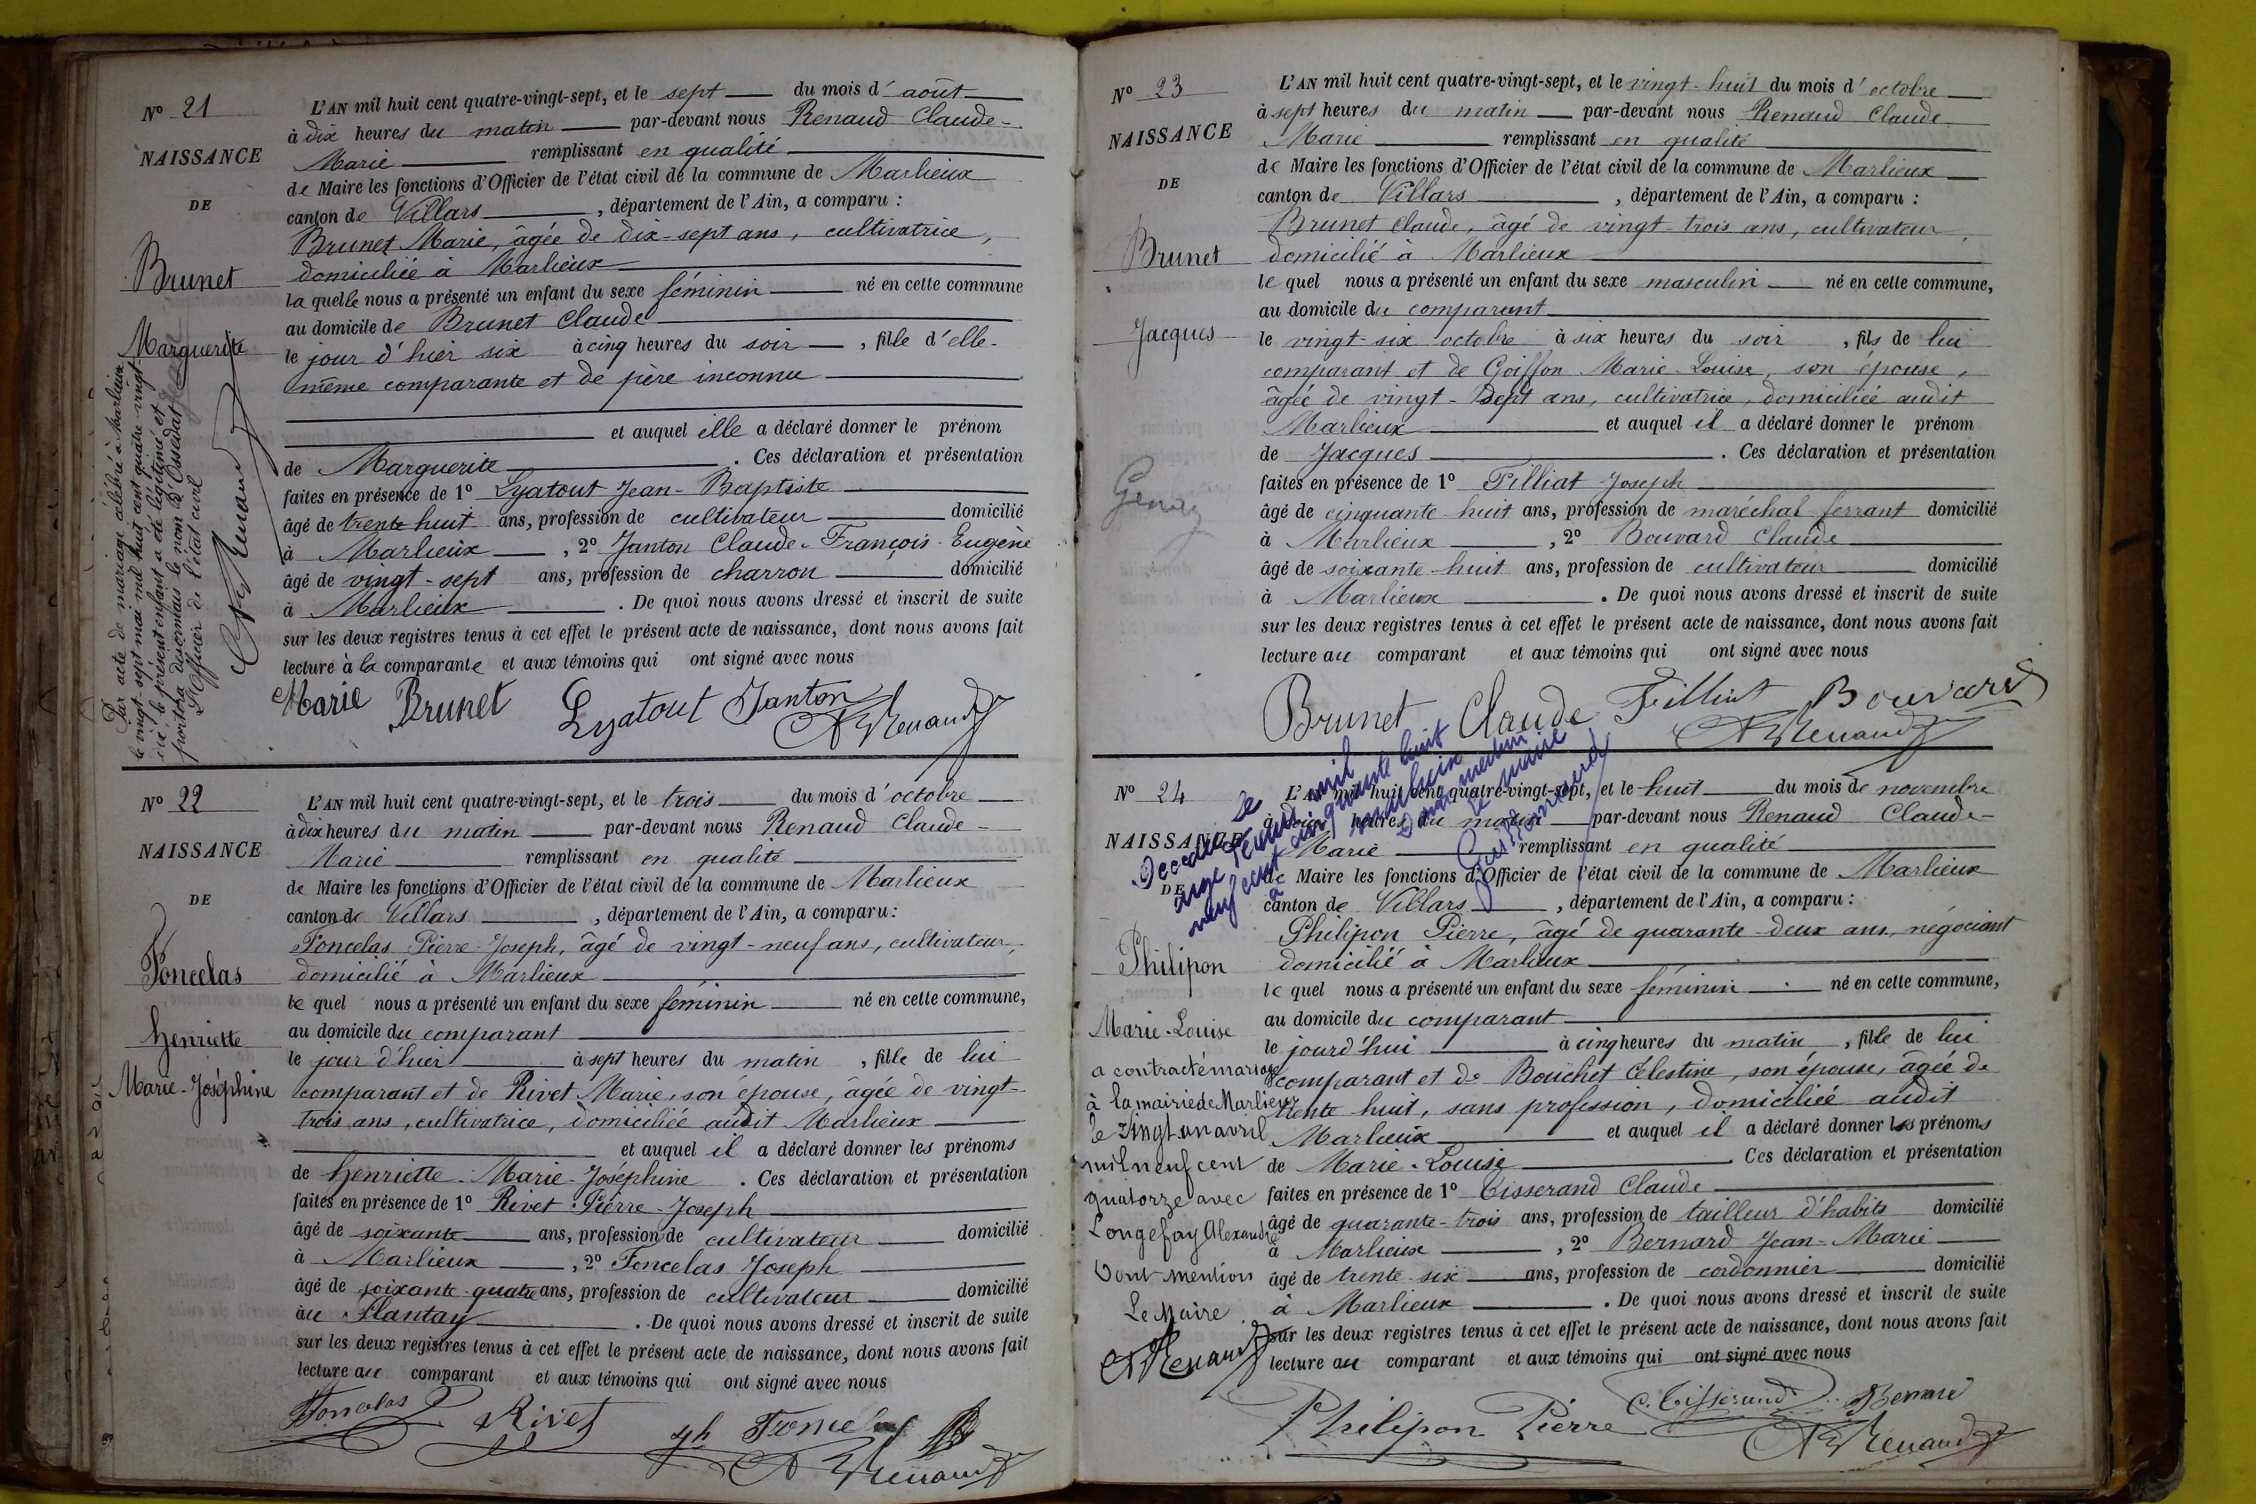 N° 21
NAISSANCE
DE
Brunet
Marguerite
Par acte de mariage célébré à Marlieux
le vingt-sept mai mil huit cent quatre-vingt
le présent enfant a été légitimé et
portera désormais le nom d'Ossédat
L'Officier de l'état civil
CM Renaud
L'AN mil huit cent quatre-vingt-sept, et le sept du mois d'août
à dix heures du matin par-devant nous Renaud Claude-
Marie remplissant en qualité
de Maire les fonctions d'Officier de l'état civil de la commune de Marlieux
canton de Villars, département de l'Ain, a comparu :
Brunet Marie, âgée de dix-sept ans, cultivatrice,
domiciliée à Marlieux
la quelle nous a présenté un enfant du sexe féminin né en cette commune
au domicile de Brunet Claude
le jour d'hier six à cinq heures du soir, fille d'elle-
même comparante et de père inconnu
et auquel elle a déclaré donner le prénom
de Marguerite. Ces déclaration et présentation
faites en présence de 1° Lyatout Jean-Baptiste
âgé de trente huit ans, profession de cultivateur domicilié
à Marlieux, 2° Janton Claude-François-Eugène
âgé de vingt-sept ans, profession de charron domicilié
à Marlieux. De quoi nous avons dressé et inscrit de suite
sur les deux registres tenus à cet effet le présent acte de naissance, dont nous avons fait
lecture à la comparante et aux témoins qui ont signé avec nous
Marie Brunet Lyatout Janton
CM Renaud
N° 22
NAISSANCE
DE
Foncelas
Henriette
Marie-Joséphine
L'AN mil huit cent quatre-vingt-sept, et le trois du mois d'octobre
à dix heures du matin par-devant nous Renaud Claude-
Marie remplissant en qualité
de Maire les fonctions d'Officier de l'état civil de la commune de Marlieux
canton de Villars, département de l'Ain, a comparu :
Foncelas Pierre-Joseph, âgé de vingt-neuf ans, cultivateur,
domicilié à Marlieux
le quel nous a présenté un enfant du sexe féminin né en cette commune,
au domicile du comparant
le jour d'hier à sept heures du matin, fille de lui
comparant et de Rivet Marie, son épouse, âgée de vingt-
trois ans, cultivatrice, domiciliée audit Marlieux
et auquel il a déclaré donner les prénoms
de Henriette-Marie-Joséphine. Ces déclaration et présentation
faites en présence de 1° Rivet Pierre-Joseph
âgé de soixante ans, profession de cultivateur domicilié
à Marlieux, 2° Foncelas Joseph
âgé de soixante-quatre ans, profession de cultivateur domicilié
au Plantay. De quoi nous avons dressé et inscrit de suite
sur les deux registres tenus à cet effet le présent acte de naissance, dont nous avons fait
lecture au comparant et aux témoins qui ont signé avec nous
Foncelas P Rivet
CM Renaud
N° 23
NAISSANCE
DE
Brunet
Jacques
L'AN mil huit cent quatre-vingt-sept, et le vingt-huit du mois d'octobre
à sept heures du matin par-devant nous Renaud Claude
Marie remplissant en qualité
de Maire les fonctions d'Officier de l'état civil de la commune de Marlieux
canton de Villars, département de l'Ain, a comparu :
Brunet Claude, âgé de vingt-trois ans, cultivateur,
domicilié à Marlieux
le quel nous a présenté un enfant du sexe masculin né en cette commune,
au domicile du comparant
le vingt-six octobre à six heures du soir, fils de lui
comparant et de Goiffon Marie-Louise, son épouse,
âgée de vingt-sept ans, cultivatrice, domiciliée audit
Marlieux et auquel il a déclaré donner le prénom
de Jacques. Ces déclaration et présentation
faites en présence de 1° Filliat Joseph
âgé de cinquante-huit ans, profession de maréchal ferrant domicilié
à Marlieux, 2° Bouvard Claude
âgé de soixante-huit ans, profession de cultivateur domicilié
à Marlieux. De quoi nous avons dressé et inscrit de suite
sur les deux registres tenus à cet effet le présent acte de naissance, dont nous avons fait
lecture au comparant et aux témoins qui ont signé avec nous
Brunet Claude Filliat Bouvard
CM Renaud
N° 24
NAISSANCE
DE
Philipon
Marie-Louise
a contracté mariage
à la mairie de Marlieux
le vingt un avril
mil neuf cent
quatorze avec
Longefay Alexandre
Dont mention
Le Maire
CM Renaud
Décédée le
mil
neuf cent cinquante huit
à Marlieux
Dont mention
Le Maire
L'AN mil huit cent quatre-vingt-sept, et le huit du mois de novembre
heures du matin par-devant nous Renaud Claude-
Marie remplissant en qualité
de Maire les fonctions d'Officier de l'état civil de la commune de Marlieux
canton de Villars, département de l'Ain, a comparu :
Philipon Pierre, âgé de quarante-deux ans, négociant
domicilié à Marlieux
le quel nous a présenté un enfant du sexe féminin né en cette commune,
au domicile du comparant
le jourd'hui à cinq heures du matin, fille de lui
comparant et de Bouchet Célestine, son épouse, âgée de
trente huit, sans profession, domiciliée audit
Marlieux et auquel il a déclaré donner les prénoms
de Marie-Louise Ces déclaration et présentation
faites en présence de 1° Tisserand Claude
âgé de quarante-trois ans, profession de tailleur d'habits domicilié
à Marlieux, 2° Bernard Jean-Marie
âgé de trente-six ans, profession de cordonnier domicilié
à Marlieux. De quoi nous avons dressé et inscrit de suite
sur les deux registres tenus à cet effet le présent acte de naissance, dont nous avons fait
lecture au comparant et aux témoins qui ont signé avec nous
Philipon Pierre C. Tisserand Bernard
CM Renaud